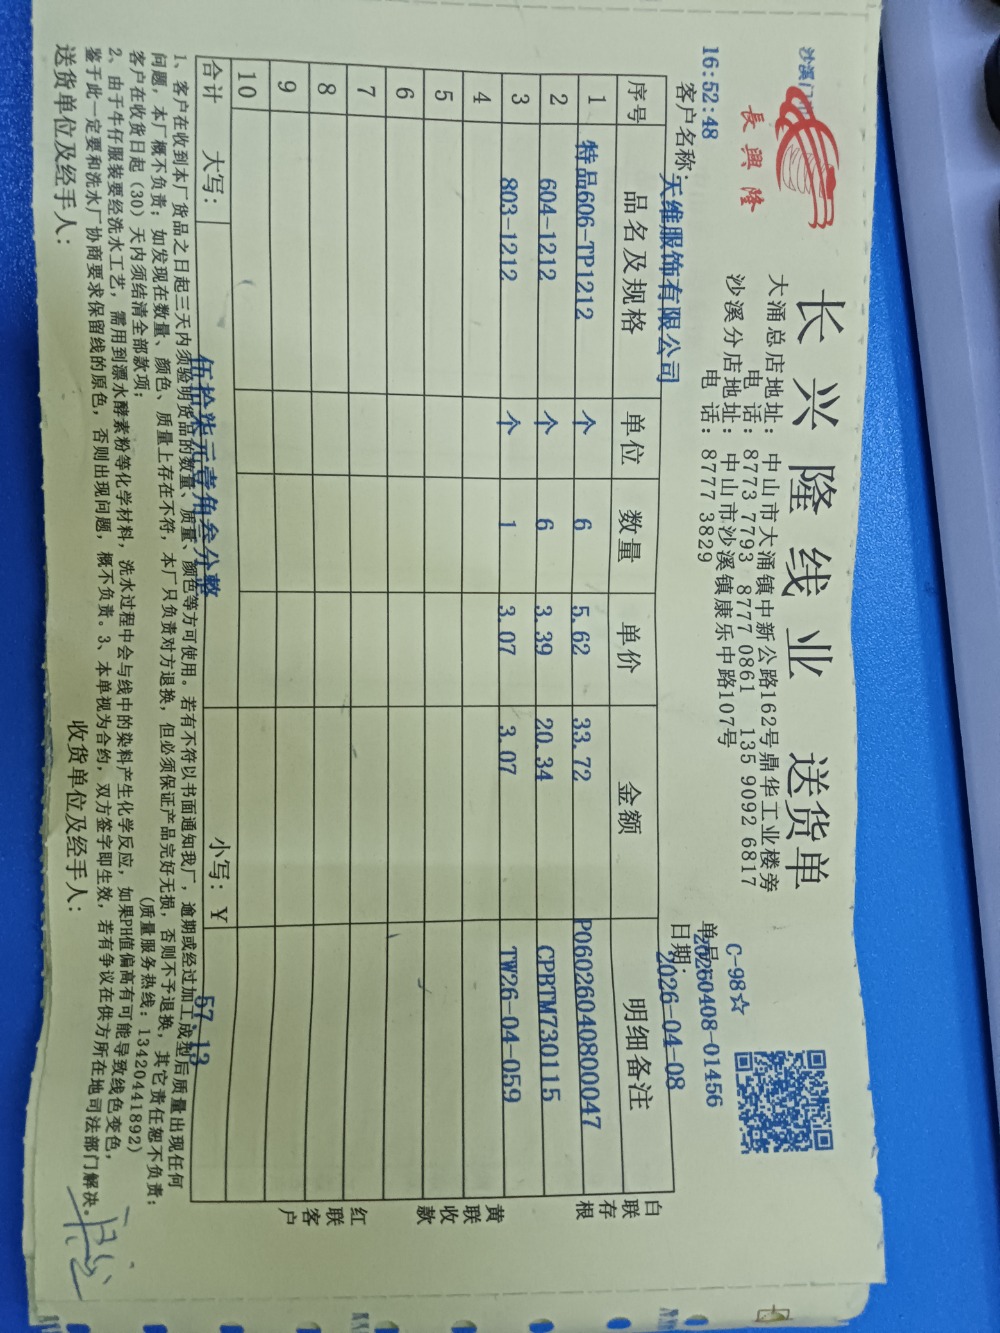 沙溪门
長興隆
长兴隆线业 送货单
大涌总店地址：中山市大涌镇中新公路162号鼎华工业楼旁
电 话：8773 7793 8777 0861 135 9092 6817
沙溪分店地址：中山市沙溪镇康乐中路107号
电 话：8777 3829
C-98☆
16:52:48
单号:20260408-01456
客户名称:天维服饰有限公司
日期:2026-04-08
序号 品名及规格 单位 数量 单价 金额 明细备注
1 特品606-TP1212 个 6 5.62 33.72 P06026040800047
2 604-1212 个 6 3.39 20.34 CPBTM730115
3 803-1212 个 1 3.07 3.07 TW26-04-059
4
5
6
7
8
9
10
合计 大写: 伍拾柒元壹角叁分整 小写: ¥ 57.13
白联存根
黄联收款
红联客户
1、客户在收到本厂货品之日起三天内须验明货品的数量、质量、颜色等方可使用。若有不符以书面通知我厂，逾期或经过加工成型后质量出现任何
问题，本厂概不负责；如发现在数量、颜色、质量上存在不符，本厂只负责对方退换，但必须保证产品完好无损，否则不予退换，其它责任恕不负责；
客户在收货日起（30）天内须结清全部款项； (质量服务热线：13420441892)
2、由于牛仔服装要经洗水工艺，需用到漂水酵素粉等化学材料，洗水过程中会与线中的染料产生化学反应，如果PH值偏高有可能导致线色变色，
鉴于此一定要和洗水厂协商要求保留线的原色，否则出现问题，概不负责。3、本单视为合约，双方签字即生效，若有争议在供方所在地司法部门解决。
送货单位及经手人： 收货单位及经手人：